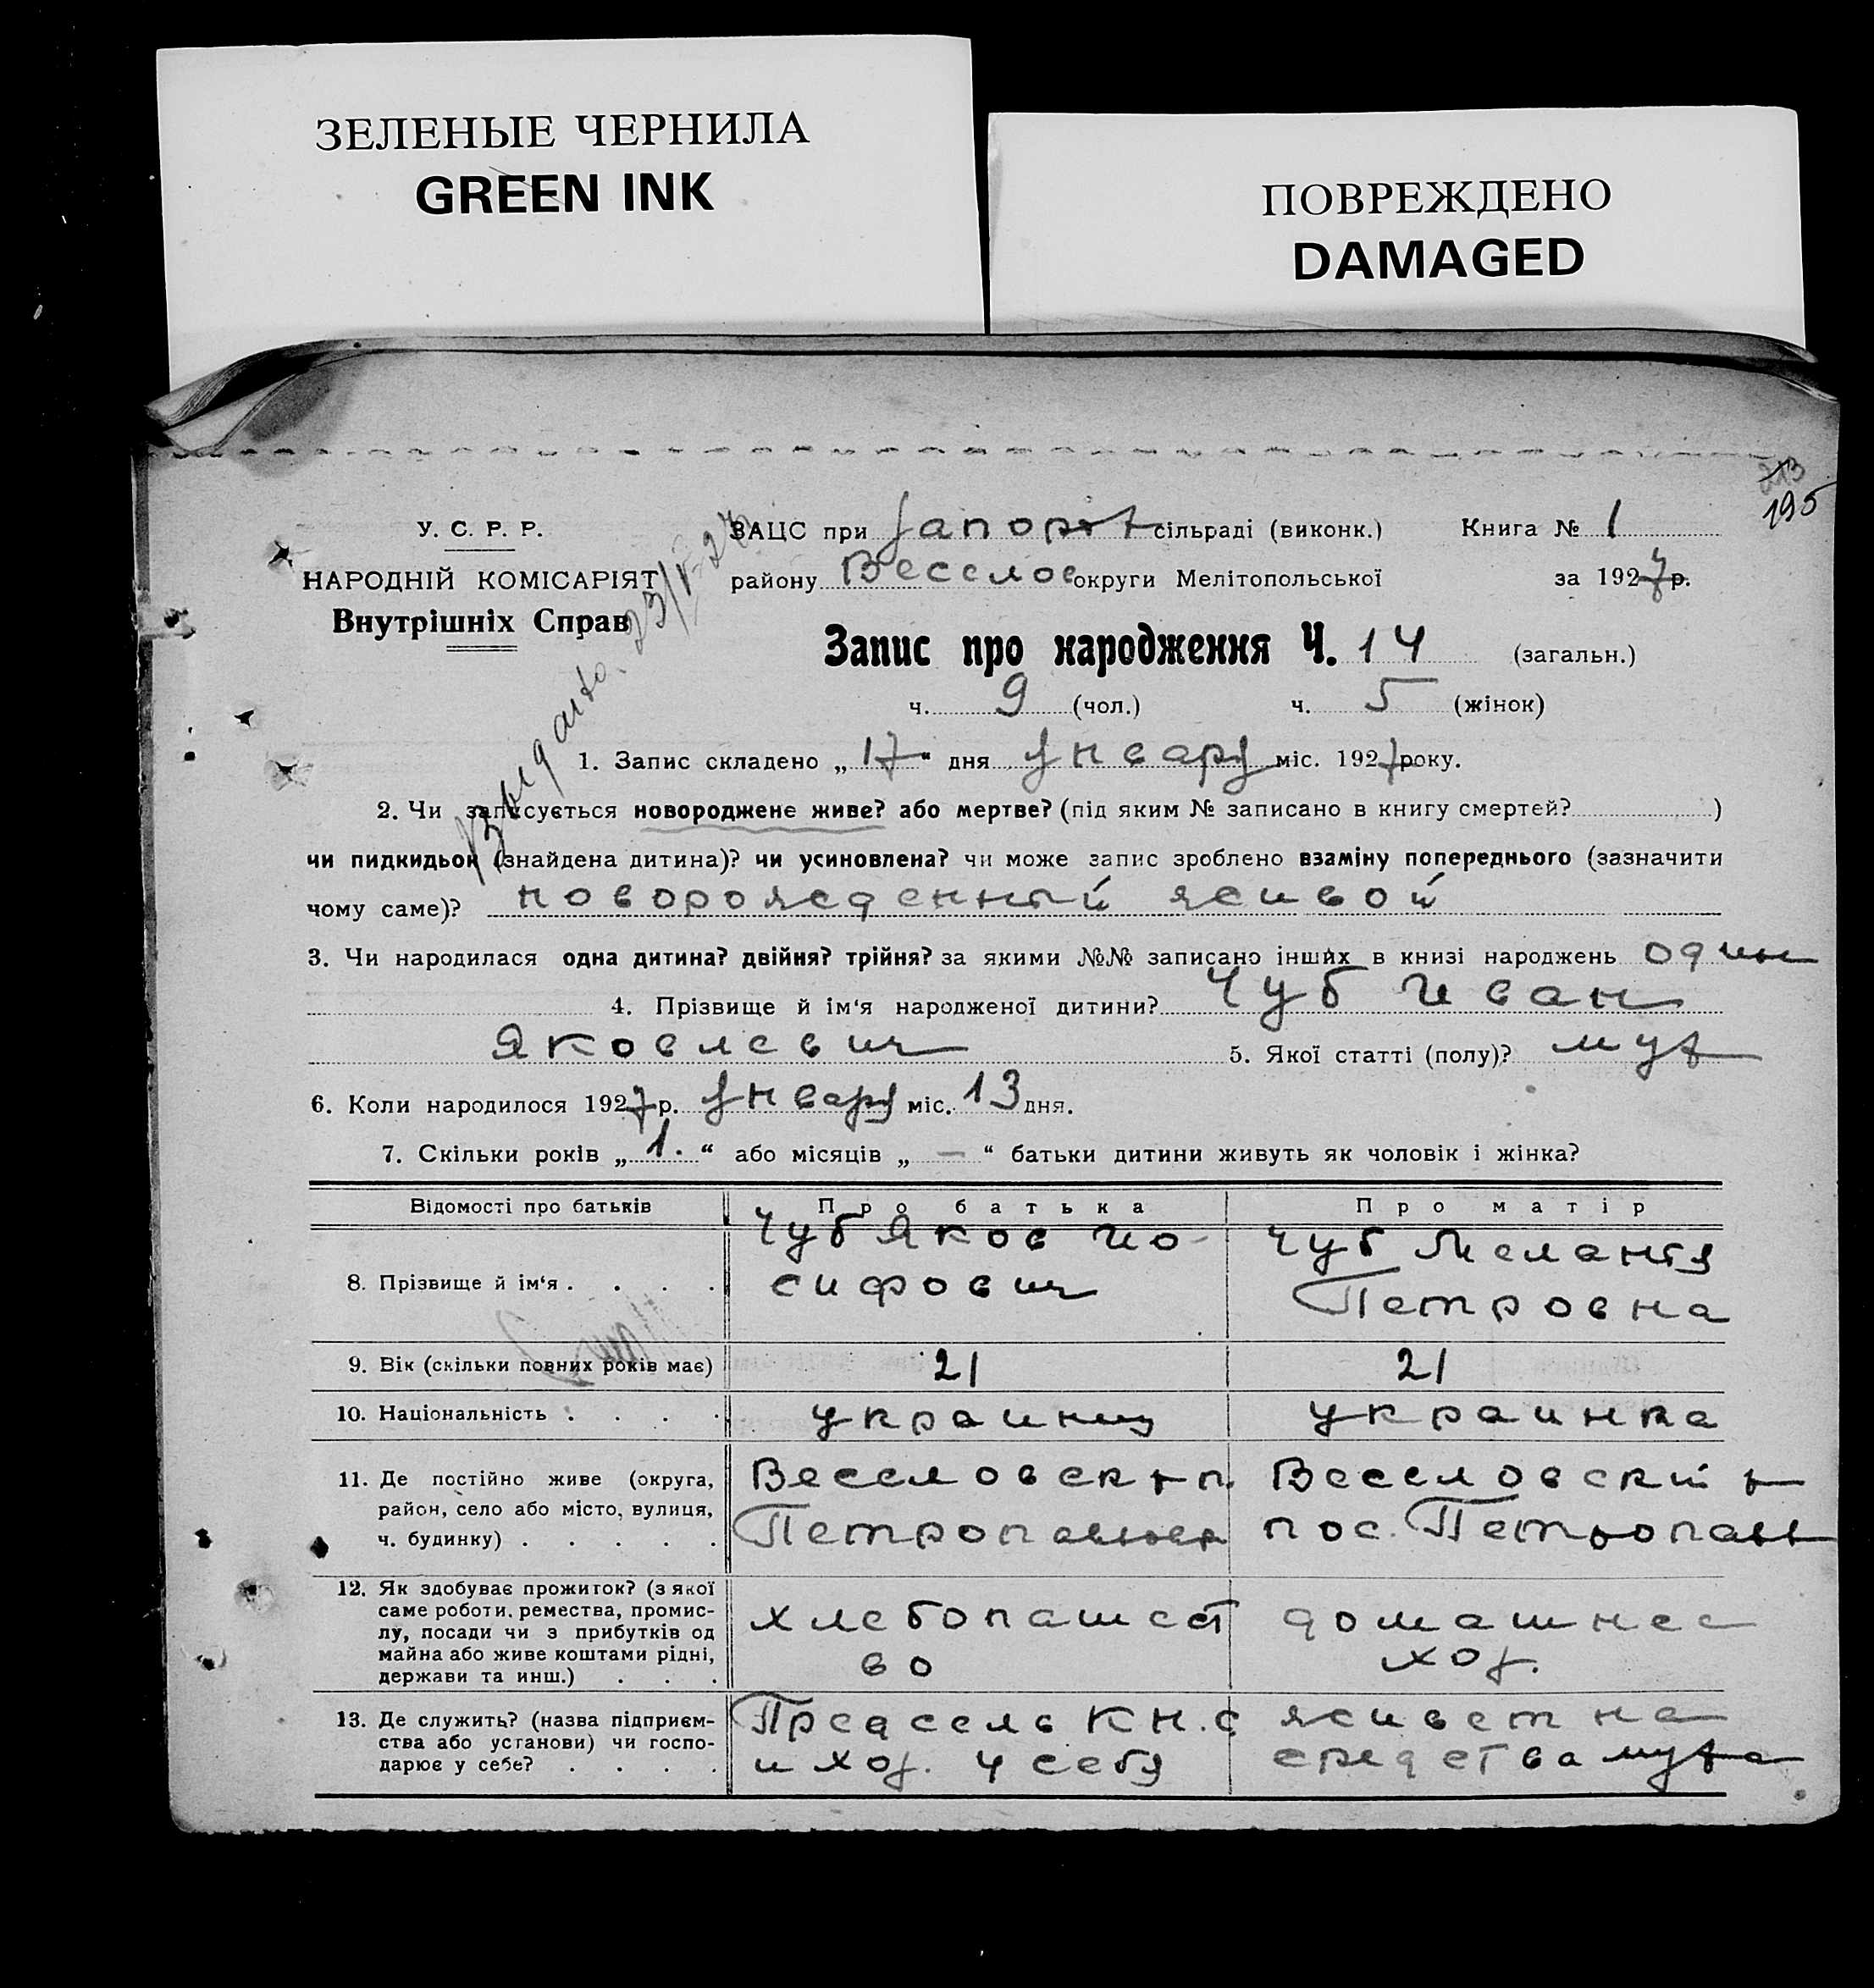 ЗЕЛЕНЫЕ ЧЕРНИЛА
GREEN INK
ПОВРЕЖДЕНО
DAMAGED
213
195
У. С. Р. Р.
НАРОДНІЙ КОМІСАРІЯТ
Внутрішніх Справ
ЗАЦС при Запорож сільраді (виконк.) Книга № 1
району Веселое округи Мелітопольської за 1927 р.
Запис про народження Ч. 14 (загальн.)
ч. 9 (чол.) ч. 5 (жінок)
1. Запис складено „ 17 “ дня Января міс. 1927 року.
2. Чи записується новороджене живе? або мертве? (під яким № записано в книгу смертей? )
чи пидкидьок (знайдена дитина)? чи усиновлена? чи може запис зроблено взаміну попереднього (зазначити
чому саме)? новорожденный живой
3. Чи народилася одна дитина? двійня? трійня? за якими №№ записано інших в книзі народжень один
4. Прізвище й ім‘я народженої дитини? Чуб Иван
Яковлевич 5. Якої статті (полу)? муж
6. Коли народилося 1927 р. Января міс. 13 дня.
7. Скільки років „ 1. “ або місяців „ — “ батьки дитини живуть як чоловік і жінка?
Відомості про батьків Про батька Про матір
8. Прізвище й ім‘я . . . . Чуб Яков Ио- Чуб Меланья
сифович Петровна
9. Вік (скільки повних років має) 21 21
10. Національність . . . . украинец украинка
11. Де постійно живе (округа, Веселовск р п. Веселовский р
район, село або місто, вулиця, Петропавловк пос. Петропавл
ч. будинку) . . . . .
12. Як здобуває прожиток? (з якої
саме роботи, ремества, промис- хлебопашест домашнее
лу, посади чи з прибутків од
майна або живе коштами рідні, во хоз.
держави та инш.) . . .
13. Де служить? (назва підприєм- Предсель К Н. С живет на
ства або установи) чи госпо- и хоз. у себя средства мужа
дарює у себе? . . . .